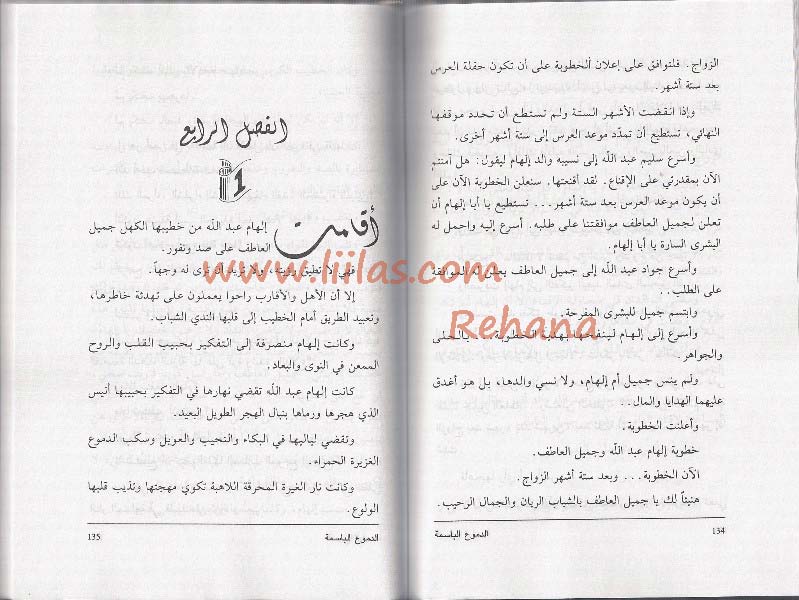 الزواج. فلنوافق على إعلان الخطوبة على أن تكون حفلة العرس
بعد ستة أشهر.
وإذا انقضت الأشهر الستة ولم تستطع أن تحدد موقفها
النهائي، تستطيع أن تمدّد موعد العرس إلى ستة أشهر أخرى.
وأسرع سليم عبد الله إلى نسيبه والد إلهام ليقول: هل آمنتم
الآن بمقدرتي على الإقناع. لقد أقنعتها. ستعلن الخطوبة الآن على
أن يكون موعد العرس بعد ستة أشهر... تستطيع يا أبا إلهام أن
تعلن لجميل العاطف موافقتنا على طلبه. أسرع إليه واحمل له
البشرى السارة يا أبا إلهام.
وأسرع جواد عبد الله إلى جميل العاطف يعلن له الموافقة
على الطلب..
وابتسم جميل للبشرى المفرحة.
وأسرع إلى إلهام لينفحها بهدية الخطوبة... بالحلى
والجواهر.
ولم ينس جميل أم إلهام، ولا نسي والدها، بل هو أغدق
عليهما الهدايا والمال..
وأعلنت الخطوبة.
خطوبة إلهام عبد الله وجميل العاطف.
الآن الخطوبة... وبعد ستة أشهر الزواج.
هنيئاً لك يا جميل العاطف بالشباب الريان والجمال الرحيب.
134
الدموع الباسمة
الفصل الرابع
1
أقامت إلهام عبد الله من خطيبها الكهل جميل
العاطف على صد ونفور.
فهي لا تطيق رؤيته، ولا تريد أن ترى له وجهاً.
إلا أن الأهل والأقارب راحوا يعملون على تهدئة خاطرها،
وتعبيد الطريق أمام الخطيب إلى قلبها الندي الشباب.
وكانت إلهام منصرفة إلى التفكير بحبيب القلب والروح
الممعن في النوى والبعاد.
كانت إلهام عبد الله تقضي نهارها في التفكير بحبيبها أنيس
الذي هجرها ورماها بنبال الهجر الطويل البعيد.
وتقضي لياليها في البكاء والنحيب والعويل وسكب الدموع
الغزيرة الحمراء.
وكانت نار الغيرة المحرقة اللاهبة تكوي مهجتها وتذيب قلبها
الولوع.
135
الدموع الباسمة
www.liilas.com
Rehana